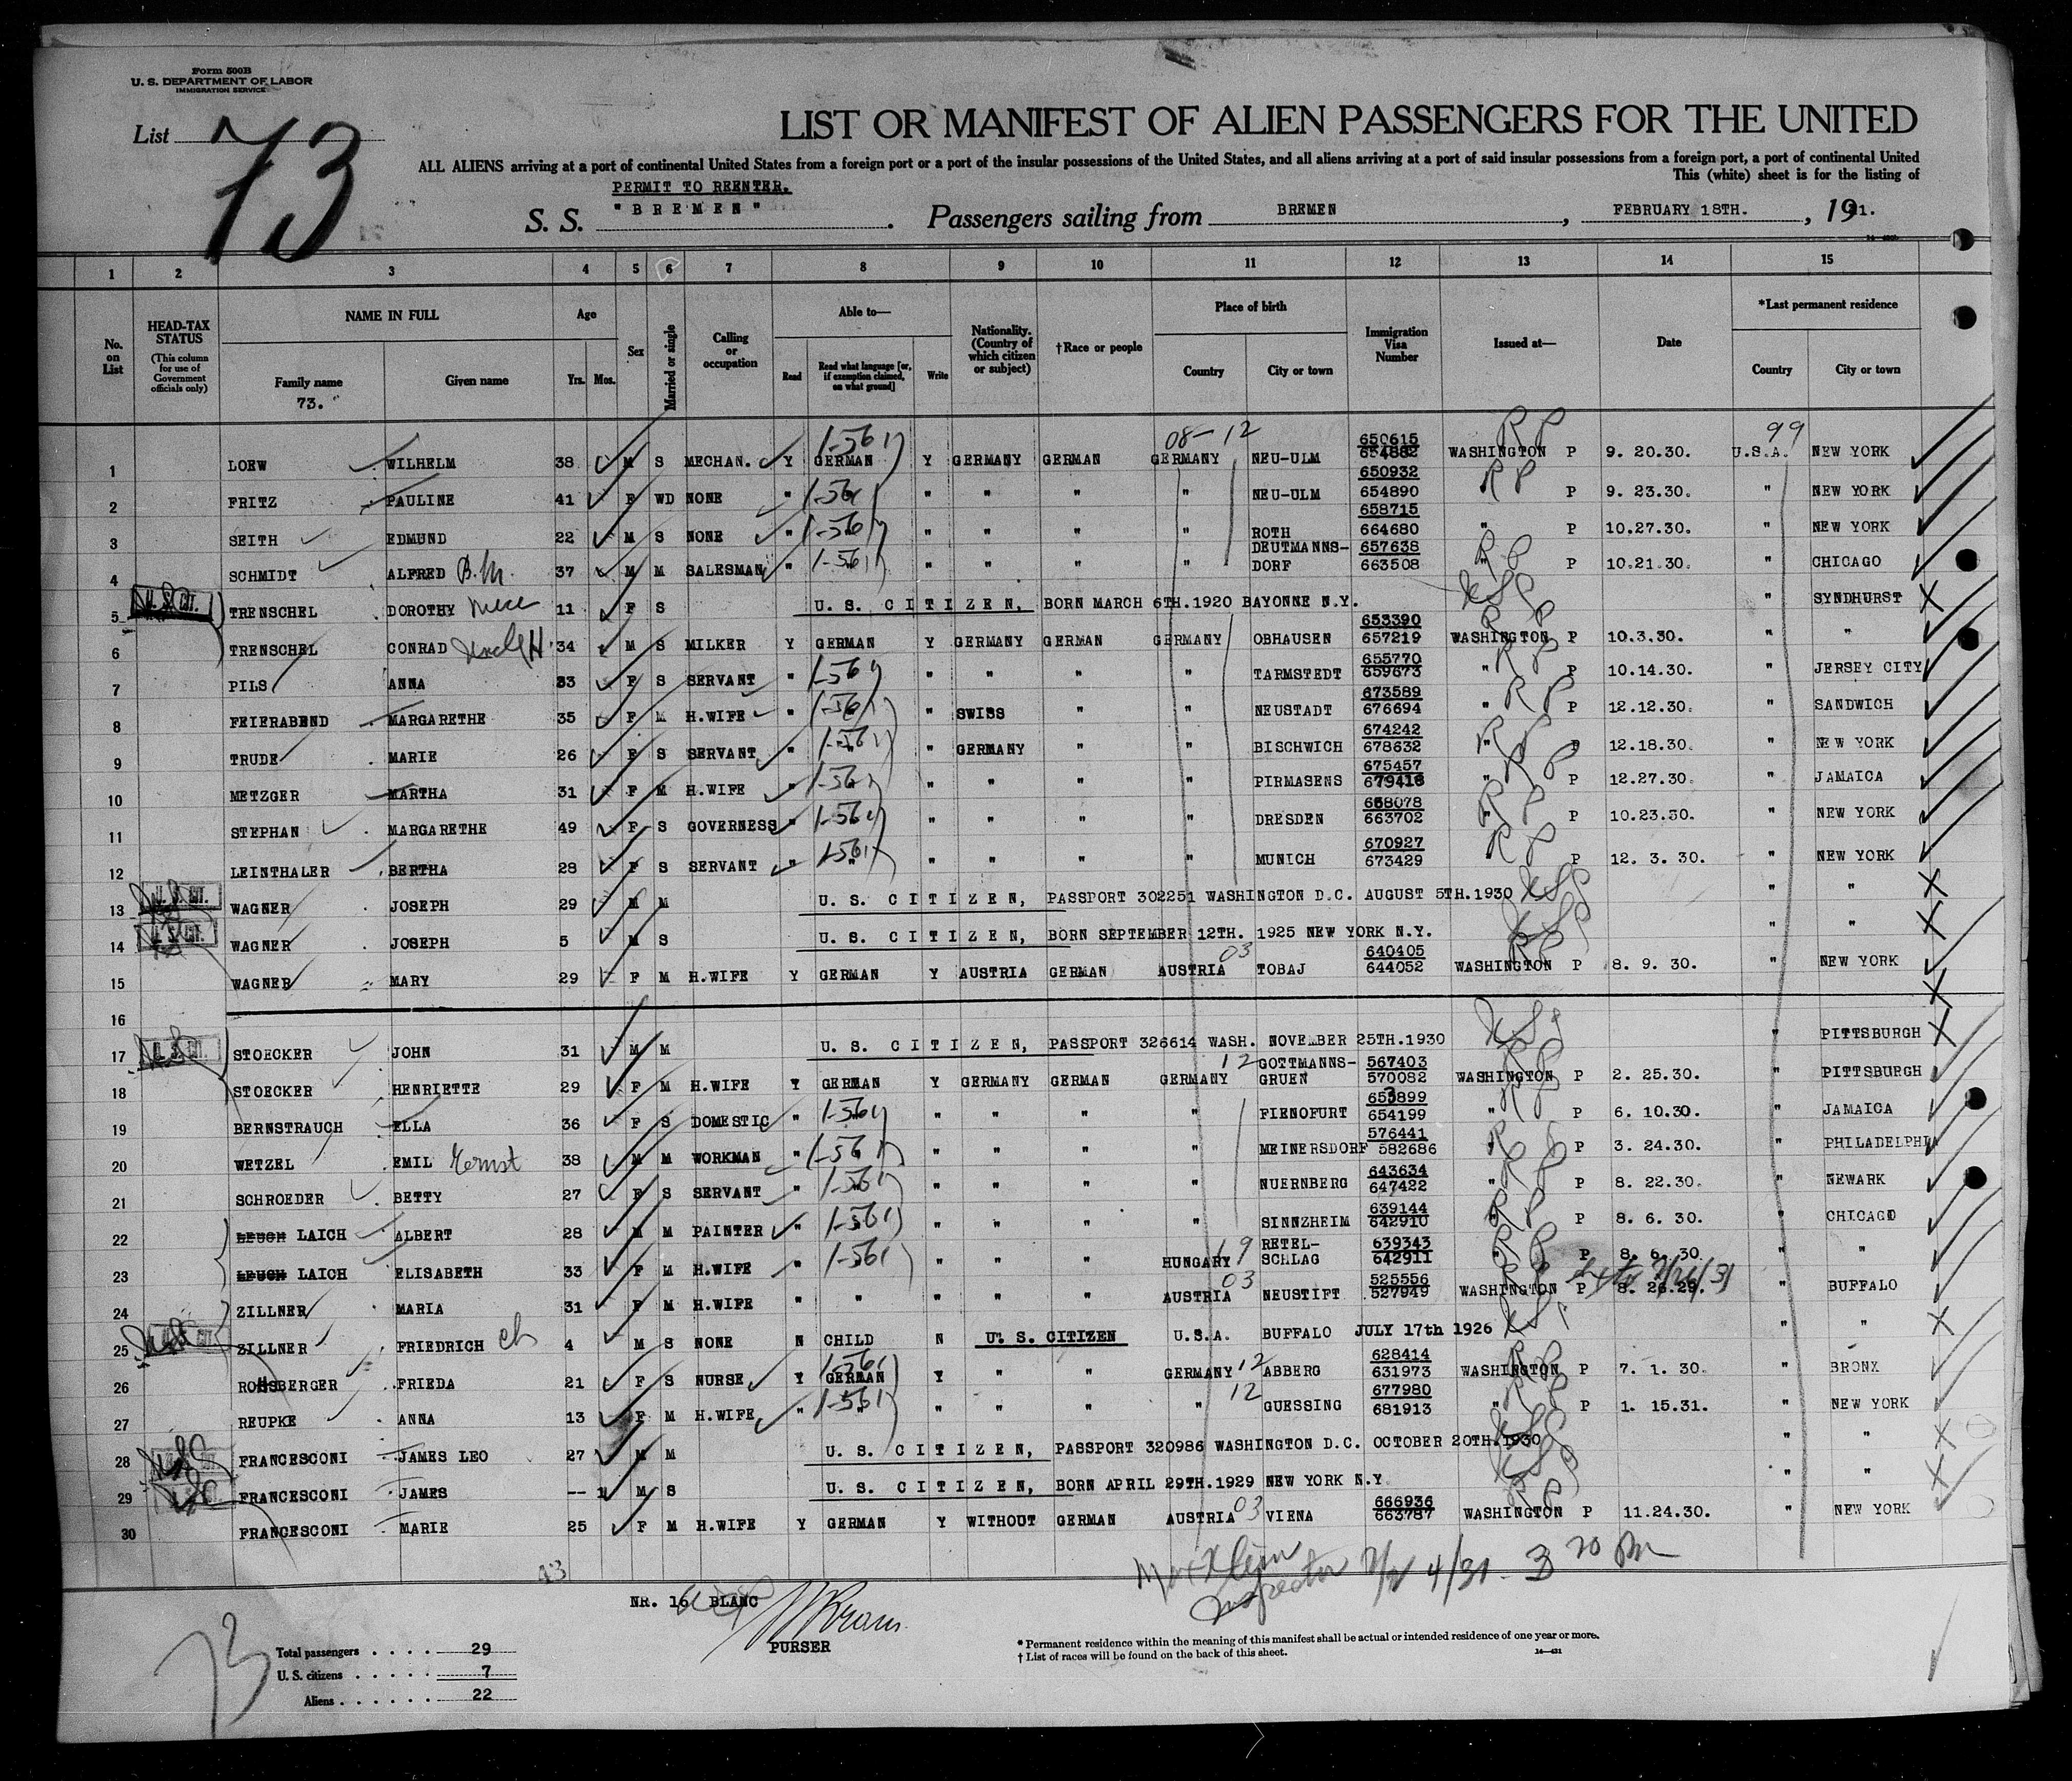 Form 500B
U. S. DEPARTMENT OF LABOR
IMMIGRATION SERVICE
List 73
LIST OR MANIFEST OF ALIEN PASSENGERS FOR THE UNITED
ALL ALIENS arriving at a port of continental United States from a foreign port or a port of the insular possessions of the United States, and all aliens arriving at a port of said insular possessions from a foreign port, a port of continental United
This (white) sheet is for the listing of
PERMIT TO REENTER.
S. S. "BREMEN". Passengers sailing from BREMEN, FEBRUARY 18TH., 1931.
1 2 3 4 5 6 7 8 9 10 11 12 13 14 15
No. on List
HEAD-TAX STATUS (This column for use of Government officials only)
NAME IN FULL
Family name
73.
Given name
Age
Yrs. Mos.
Sex
Married or single
Calling or occupation
Able to—
Read
Read what language [or, if exemption claimed, on what ground]
Write
Nationality. (Country of which citizen or subject)
†Race or people
Place of birth
Country
City or town
Immigration Visa Number
Issued at—
Date
*Last permanent residence
Country
City or town
08-12 99
1 LOEW WILHELM 38 M S MECHAN. Y GERMAN Y GERMANY GERMAN GERMANY NEU-ULM 650615 654882 WASHINGTON P 9. 20.30. U.S.A. NEW YORK
2 FRITZ PAULINE 41 F WD NONE " " " " " NEU-ULM 650932 654890 P 9. 23.30. " NEW YORK
3 SEITH EDMUND 22 M S NONE " " " " " ROTH 658715 664680 " P 10.27.30. " NEW YORK
4 SCHMIDT ALFRED B.M. 37 M M SALESMAN " " " " " DEUTMANNS-DORF 657638 663508 " P 10.21.30. " CHICAGO
5 U. S. CIT. TRENSCHEL DOROTHY niece 11 F S U. S. CITIZEN, BORN MARCH 6TH.1920 BAYONNE N.Y. " SYNDHURST
6 TRENSCHEL CONRAD Uncle H 34 M S MILKER Y GERMAN Y GERMANY GERMAN GERMANY OBHAUSEN 653390 657219 WASHINGTON P 10.3.30. " "
7 PILS ANNA 33 F S SERVANT " " " " " TARMSTEDT 655770 659673 " P 10.14.30. " JERSEY CITY
8 FEIERABEND MARGARETHE 35 F M H.WIFE " " SWISS " " NEUSTADT 673589 676694 " P 12.12.30. " SANDWICH
9 TRUDE MARIE 26 F S SERVANT " " " GERMANY " " BISCHWICH 674242 678632 " P 12.18.30. " NEW YORK
10 METZGER MARTHA 31 F M H.WIFE " " " " " PIRMASENS 675457 679416 " P 12.27.30. " JAMAICA
11 STEPHAN MARGARETHE 49 F S GOVERNESS " " " " " DRESDEN 658078 663702 " P 10.23.30. " NEW YORK
12 LEINTHALER BERTHA 28 F S SERVANT " " " " " " MUNICH 670927 673429 P 12. 3. 30. " NEW YORK
13 U. S. CIT. WAGNER JOSEPH 29 M M U. S. CITIZEN, PASSPORT 302251 WASHINGTON D.C. AUGUST 5TH.1930 " "
14 U. S. CIT. WAGNER JOSEPH 5 M S U. S. CITIZEN, BORN SEPTEMBER 12TH. 1925 NEW YORK N.Y. " "
15 WAGNER MARY 29 F M H.WIFE Y GERMAN Y AUSTRIA GERMAN AUSTRIA 03 TOBAJ 640405 644052 WASHINGTON P 8. 9. 30. " NEW YORK
16
17 U. S. CIT. STOECKER JOHN 31 M M U. S. CITIZEN, PASSPORT 326614 WASH. NOVEMBER 25TH.1930 " PITTSBURGH
18 STOECKER HENRIETTE 29 F M H.WIFE Y GERMAN Y GERMANY GERMAN GERMANY 12 GOTTMANNS-GRUEN 567403 570082 WASHINGTON P 2. 25.30. " PITTSBURGH
19 BERNSTRAUCH ELLA 36 F S DOMESTIC " " " " " FIENOFURT 653899 654199 " P 6. 10.30. " JAMAICA
20 WETZEL EMIL Ernst 38 M M WORKMAN " " " " " MEINERSDORF 576441 582686 P 3. 24.30. " PHILADELPHIA
21 SCHROEDER BETTY 27 F S SERVANT " " " " " NUERNBERG 643634 647422 P 8. 22.30. " NEWARK
22 LEUCH LAICH ALBERT 28 M M PAINTER " " " " " SINNZHEIM 639144 642910 " P 8. 6. 30. " CHICAGO
23 LEUCH LAICH ELISABETH 33 F M H.WIFE " " " " HUNGARY 19 RETEL-SCHLAG 639343 642911 " P 8. 6. 30. " "
24 ZILLNER MARIA 31 F M H.WIFE " " " " " AUSTRIA 03 NEUSTIFT 525556 527949 WASHINGTON P 8. 26.29. " BUFFALO
25 ZILLNER FRIEDRICH ch 4 M S NONE N CHILD N U. S. CITIZEN U.S.A. BUFFALO JULY 17th 1926 " "
26 ROSSBERGER FRIEDA 21 F S NURSE Y GERMAN Y " " GERMANY 12 ABBERG 628414 631973 WASHINGTON P 7. 1. 30. " BRONX
27 REUPKE ANNA 13 F M H.WIFE " " " " " 12 GUESSING 677980 681913 " P 1. 15.31. " NEW YORK
28 FRANCESCONI JAMES LEO 27 M M U. S. CITIZEN, PASSPORT 320986 WASHINGTON D.C. OCTOBER 20TH.1930 " "
29 FRANCESCONI JAMES -- M S U. S. CITIZEN, BORN APRIL 29TH.1929 NEW YORK N.Y. " "
30 FRANCESCONI MARIE 25 F M H.WIFE Y GERMAN Y WITHOUT GERMAN AUSTRIA 03 VIENA 666936 663787 WASHINGTON P 11.24.30. " NEW YORK
Inspector
NR. 16 BLANC
PURSER
73
Total passengers . . . . 29
U. S. citizens . . . . . 7
Aliens . . . . . . 22
* Permanent residence within the meaning of this manifest shall be actual or intended residence of one year or more.
† List of races will be found on the back of this sheet.
14—421